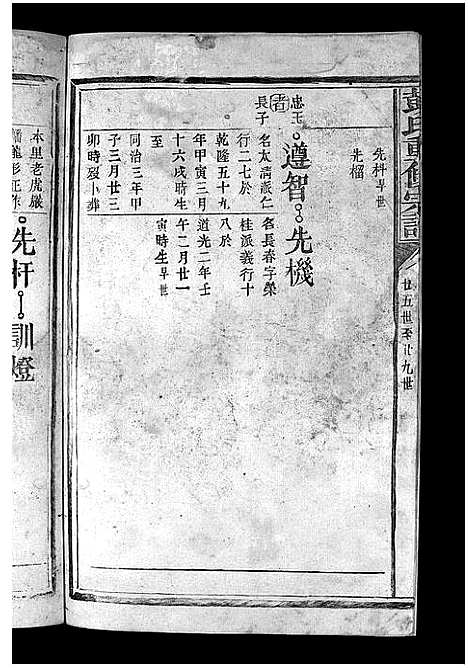 彭氏重修宗譜
廿五世至廿九世
先科早世
先榴
忠玉
長子
遵智
先機
名太清派仁
行二七於
乾隆五十九
年甲寅三月
十六戌時生
至
同治三年甲
子三月廿三
卯時歿小葬
名長春字榮
桂派義行十
八於
道光二年壬
午二月廿一
寅時生早世
本里老虎巖
蟠龍形正作
先杆
訓燈